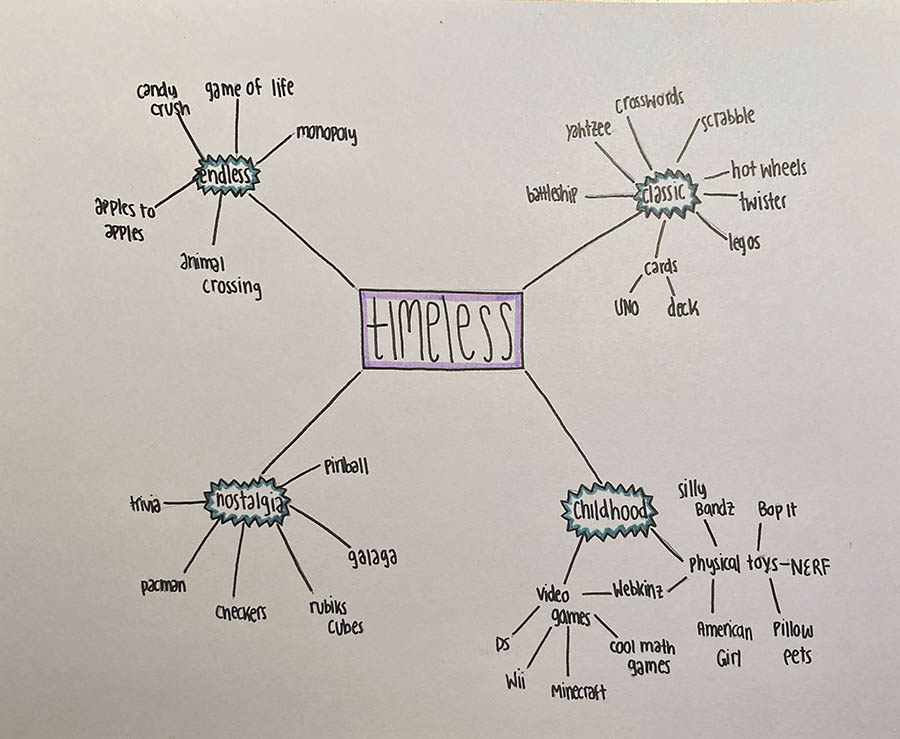 timeless
endless
candy
crush
game of life
monopoly
apples to
apples
animal
crossing
classic
battleship
yahtzee
crosswords
scrabble
hot wheels
twister
legos
cards
UNO
deck
nostalgia
trivia
pinball
galaga
rubiks
cubes
checkers
pacman
childhood
video
games
DS
Wii
Minecraft
cool math
games
Webkinz
physical toys-NERF
silly
Bandz
Bop It
American
Girl
Pillow
Pets